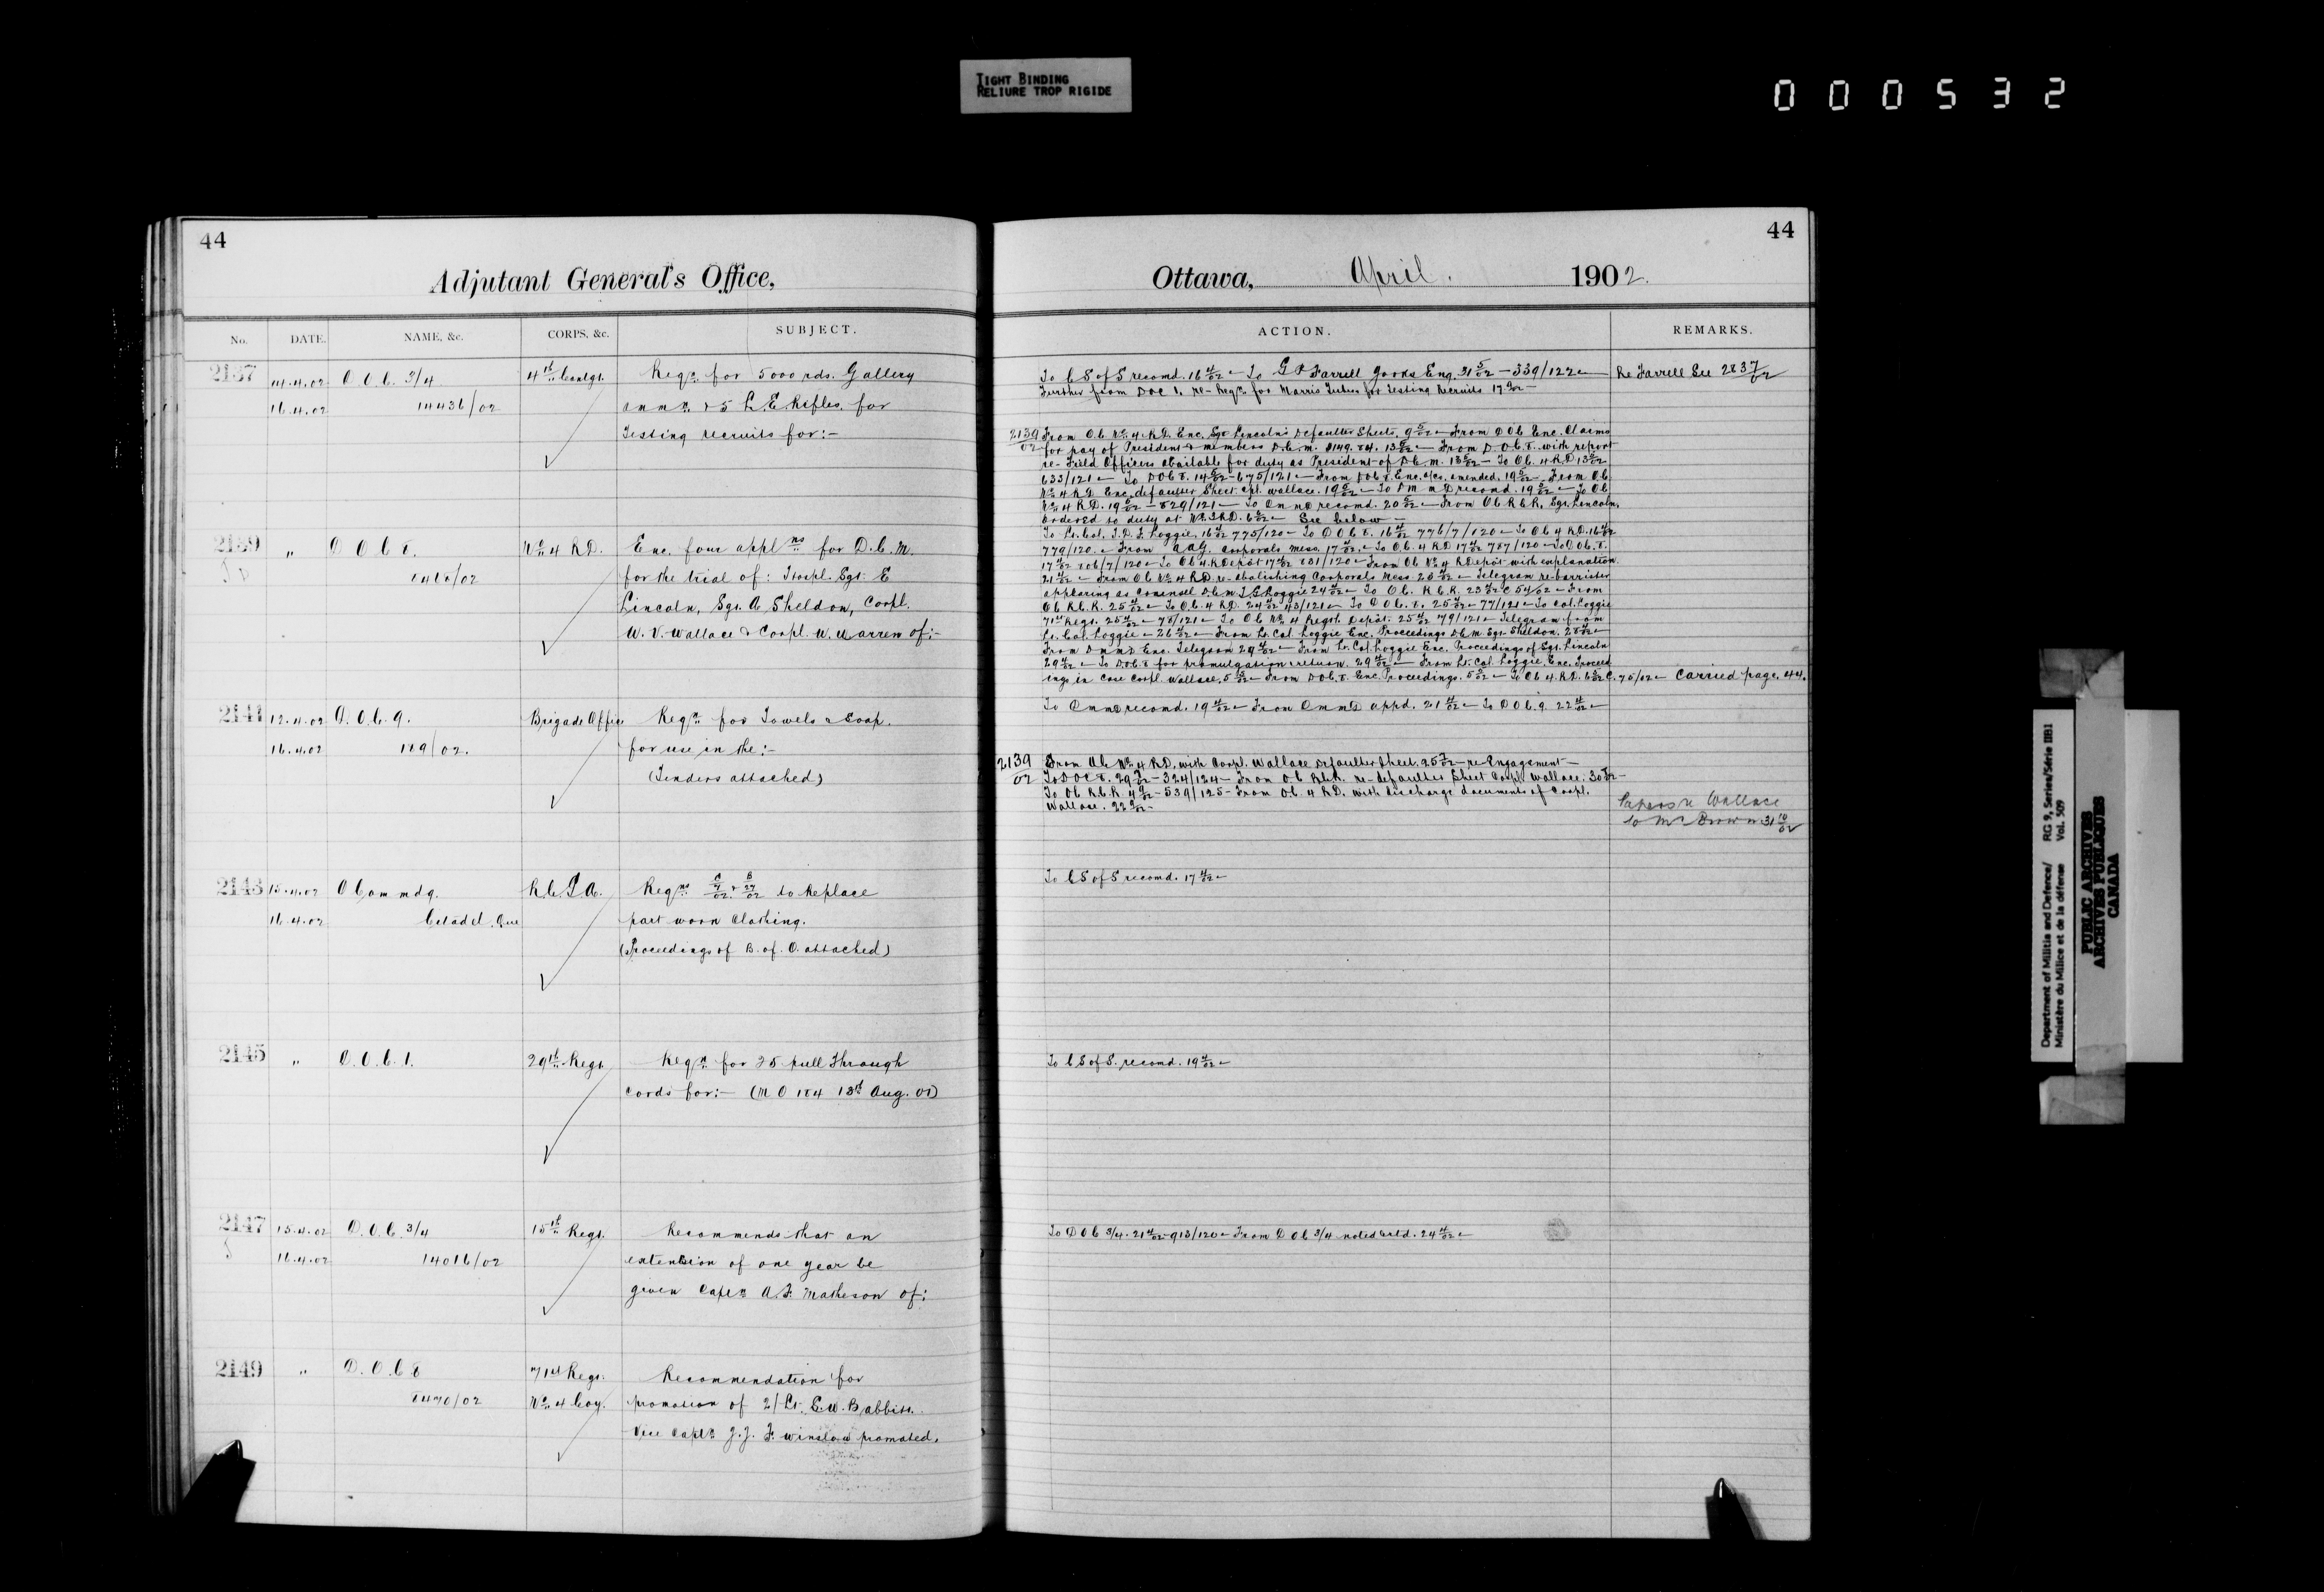 TIGHT BINDING
RELIURE TROP RIGIDE
000532
44
Adjutant General's Office,
No. DATE. NAME, &c. CORPS, &c. SUBJECT.
2137 14.4.02 D.O.C. 3/4 4th Contgt. Reqn. for 5000 rds. Gallery
16.4.02 14436/02 ammn. & 5 L.E. Rifles. for
Testing recruits for:-
2139 " D O C 8. No. 4 R.D. Enc. four applns for D.C.M.
8418/02 for the trial of: Hospl. Sgt. E
Lincoln, Sgt. A Sheldon, Corpl.
W. V. Wallace & Corpl. W. Warren of:-
2141 12.4.02 D.O.C. 9. Brigade Office Reqn. for Towels & Soap.
16.4.02 189/02. for use in the:-
(Tenders attached)
2143 15.4.02 O Commdg. R.C.G.A. Reqns. to Replace
16.4.02 Citadel, Que part worn Clothing.
(Proceedings of B. of O. attached)
2145 " D.O.C. 1. 29th Regt. Reqn. for 25 pull through
cords for:- (M O 184 13th Aug. 01)
2147 15.4.02 D.O.C. 3/4 15th Regt. Recommends that an
16.4.02 14016/02 extension of one year be
given Captn A.F. Matheson of:
2149 " D.O.C 8 71st Regt. Recommendation for
8470/02 No. 4 Coy. promotion of 2/Lt. E.W. Babbitt.
Vice Captn J.J. F. Winslow promoted.
44
Ottawa, April. 1902.
ACTION. REMARKS.
To C S of S recomd. 16 4/02 - To G P Farrell Goods Eng. 31 5/02 - 339/122 - Re Farrell See 2837/02
Further from DOC 1. re- Reqn. for Morris Tubes for testing Recruits 17
2139/02 From O.C. No. 4 R.D. Enc. Sgt Lincoln's Defaulter Sheets. 9 5/02 - From D O C Enc. Claims
for pay of President & members D.C.M. 13 5/02 - From D.O.C. 8. with report
re- Field Officers available for duty as President of D.C.M. 13 5/02 - To O.C. 4 R.D 13 5/02
633/121 - To DOC 8. 14 5/02 - 675/121 - From DOC 8. Enc. amended. 19 5/02 - From O.C.
No. 4 R.D Enc. defaulter Sheet Cpl. Wallace. 19 5/02 - To recomd. 19 5/02 - To O.C.
No. 4 R.D. 19 5/02 - 829/121 - To recomd. 20 5/02 - From O C R.C.R. Sgt. Lincoln,
ordered to duty at No. 3 R.D. - See below -
To Lt. Col. Loggie. 16 4/02 775/120 - To D O C 8. 16 4/02 776/7/120 - To O C 4 R.D. 16 4/02
779/120. - From A.A.G. Corporals mess. 17 4/02 - To O.C. 4 R.D 17 4/02 787/120 - To D.O.C. 8.
17 4/02 806/7/120 - To O C 4. R. Depôt 17 4/02 831/120 - From O C No. 4 R Depôt with explanation
21 4/02 - From O C No. 4 R.D. re- abolishing Corporals Mess 23 4/02 - Telegram re- barrister
appearing as counsel D.C.M. Loggie 24 4/02 - To O.C. R.C.R. 23 4/02 C 54/02 - From
O C R.C.R. 25 4/02 - To O.C. 4 R.D. 24 4/02 43/121 - To D.O.C. 8. 25 4/02 - 77/121 - To Col. Loggie
71st Regt. 25 4/02 - 78/121 - To O C No. 4 Regtl. Depôt. 25 4/02 79/121 - Telegram from
Lt. Col. Loggie - 26 4/02 - From Lt. Col. Loggie Enc. Proceedings D.C.M. Sgt. Sheldon. 28 4/02 -
From Enc. Telegram 29 4/02 - From Lt. Col. Loggie Enc. Proceedings of Sgt. Lincoln
29 4/02 - To D.O.C. 8 for promulgation & return. 29 4/02 - From Lt. Col. Loggie. Enc. Proceed
ings in Case Corpl. Wallace. 5 5/02 - From DOC. 8. Enc. Proceedings. 5 5/02 - To O C 4. R.D. 6 5/02 C. 75/02 - Carried page. 44.
To recomd. 19 4/02 - From appd. 21 4/02 - To D O C. 9. 22 4/02 -
2139/02 From O.C. No. 4 R.D. with Corpl. Wallace Defaulter Sheet. 25 7/02 - re Engagement -
To DOC 8. 29 7/02 - 324/124 - From O.C. R.C.R. re- defaulter Sheet Corpl. Wallace. 30 7/02 -
To O C R.C.R. 4 9/02 - 539/125 - From O.C. 4 R.D. with discharge documents of Corpl.
Wallace. 22 9/02 -
Papers re Wallace
to Mr Brown 31 10/02
To C S of S recomd. 17 4/02 -
To C S of S. recomd. 19 4/02 -
To D O C 3/4. 21 4/02 - 913/120 - From D O C 3/4 noted & retd. 24 4/02 -
Department of Militia and Defence/ RG 9, Series/Série IIB1
Ministère du Milice et de la défense Vol. 509
PUBLIC ARCHIVES
ARCHIVES PUBLIQUES
CANADA